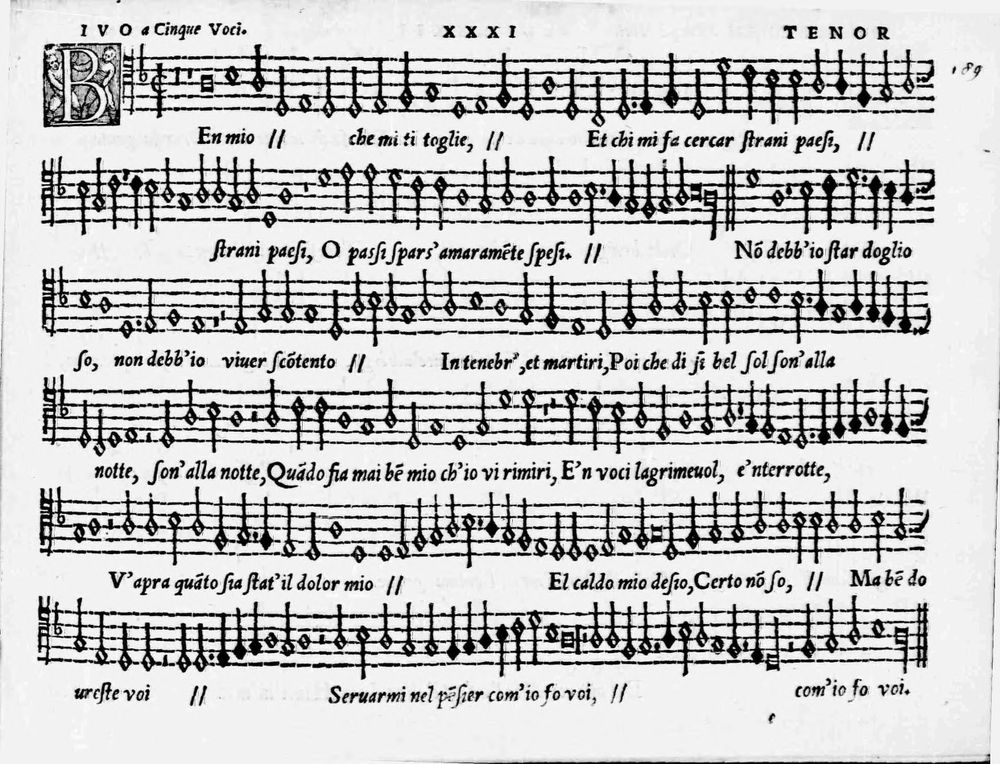 IVO a Cinque Voci. XXXI TENOR
189
B
En mio // che mi ti toglie, // Et chi mi fa cercar ſtrani paeſi, //
ſtrani paeſi, O paſſi ſpars' amaramẽte ſpeſi. // Nõ debb'io ſtar doglio
ſo, non debb'io viuer ſcõtento // In tenebr', et martiri, Poi che di ſi bel ſol ſon' alla
notte, ſon' alla notte, Quãdo fia mai bẽ mio ch'io vi rimiri, E'n voci lagrimeuol, e'nterrotte,
V'apra quãto ſia ſtat'il dolor mio // El caldo mio deſio, Certo nõ ſo, // Ma bẽ do
ureſte voi // Seruarmi nel pẽſier com'io fo voi, // com'io fo voi.